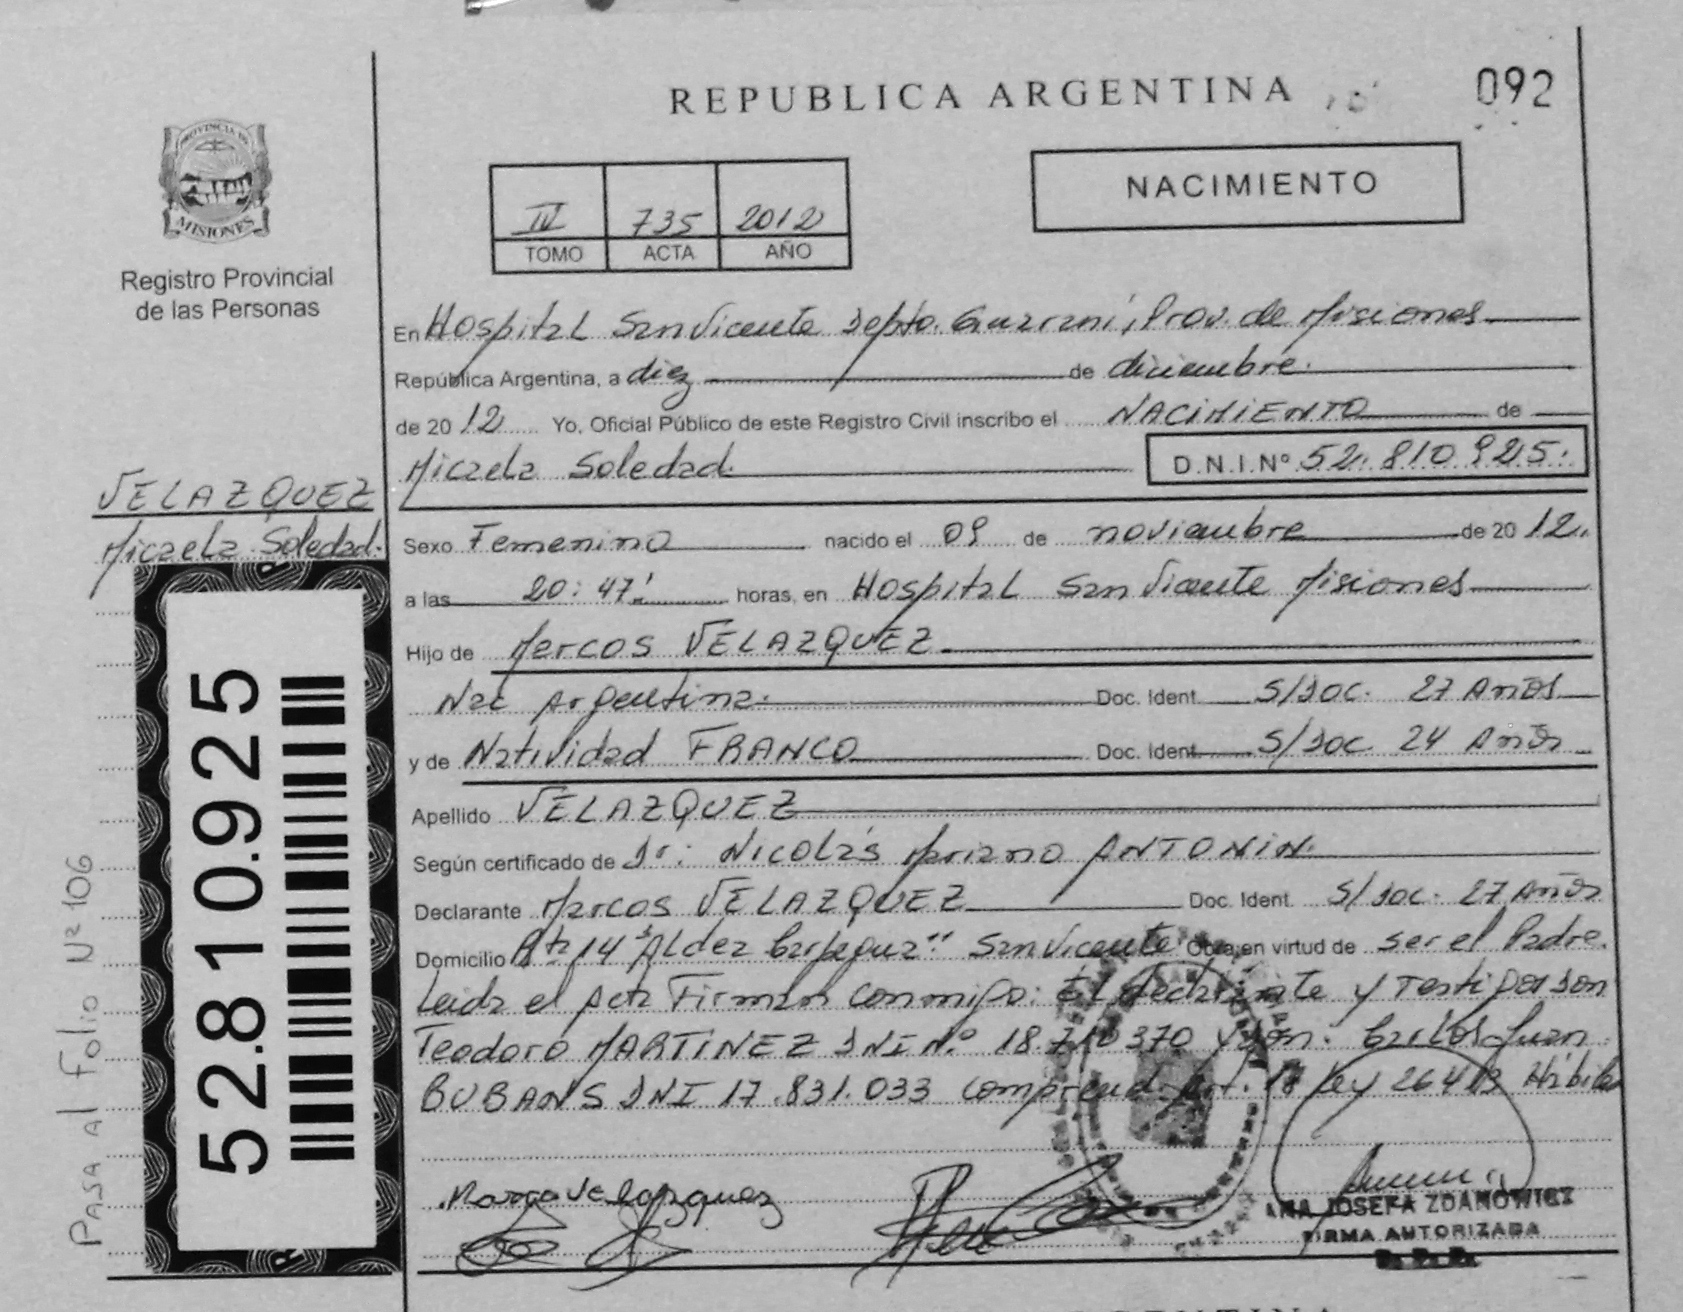 REPUBLICA ARGENTINA
092
PROVINCIA DE
MISIONES
Registro Provincial
de las Personas
IV 735 2012
TOMO ACTA AÑO
NACIMIENTO
En Hospital San Vicente Depto. Guaraní, Prov. de Misiones
República Argentina, a diez de diciembre.
de 2012 Yo, Oficial Público de este Registro Civil inscribo el NACIMIENTO de
Micaela Soledad. D.N.I.Nº 52.810925.
VELAZQUEZ
Micaela Soledad.
Sexo Femenino nacido el 09 de noviembre de 2012.
a las 20:47' horas, en Hospital San Vicente Misiones
Hijo de Marcos VELAZQUEZ.
Nac Argentina. Doc. Ident. S/Doc. 27 Años
y de Natividad FRANCO Doc. Ident. S/Doc 24 Años
Apellido VELAZQUEZ
Según certificado de Dr: Nicolás Mariano ANTONIN.
Declarante Marcos VELAZQUEZ Doc. Ident. S/Doc. 27 Años
Domicilio Rta 14 "Aldea San Vicente Obra en virtud de ser el Padre.
Leida el Acta Firman conmigo: El declarante y Testigos son
Teodoro MARTINEZ DNI N.º 18. 370 y Don: Carlos Juan
BUBANS DNI 17.831.033 comprend. Art. 18 Ley 26413 Hábiles
52.810.925
PASA Al Folio Nº 106
Marco Velazquez
ANA JOSEFA ZDANOWICZ
FIRMA AUTORIZADA
R.P.P.